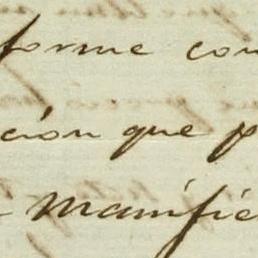 forme con
ción que p
manifie